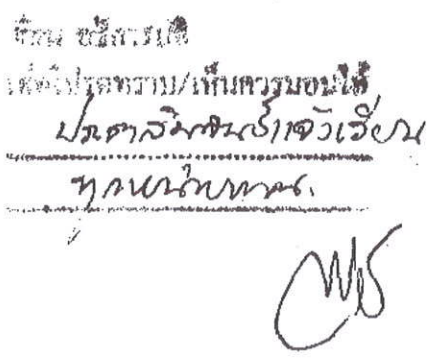 เรียน อธิการบดี
เพื่อโปรดทราบ/เห็นควรมอบให้
ประชาสัมพันธ์แจ้งเวียน
ทุกหน่วยงาน.